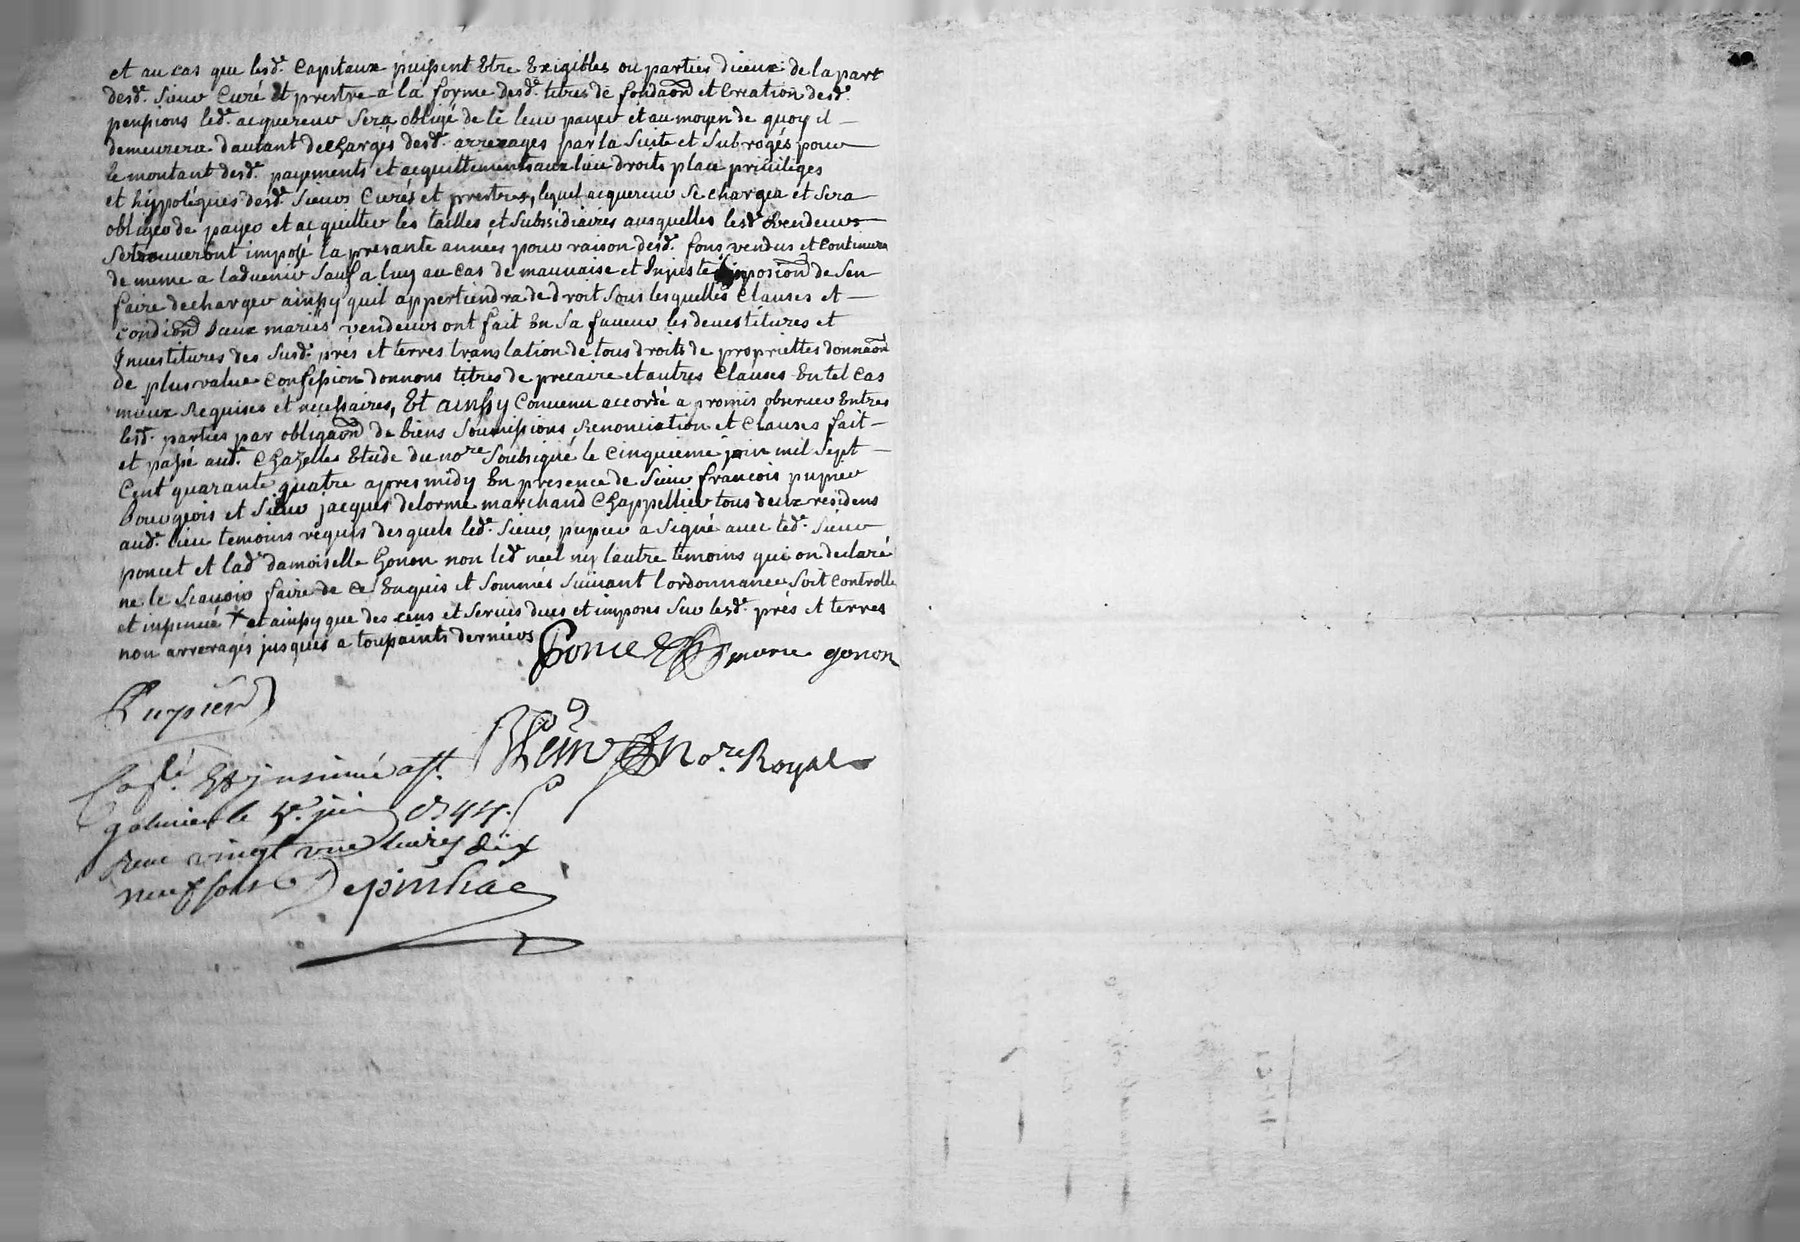 et au cas que lesd. Capitaux puissent Etre Exigibles ou parties diceux de la part
desd. Sieur Curé et prestre a la forme desd. titres de fondaon et Creation desd.
penssions led. acquereur Sera obligé de le leur payer et au moyen de quoy il
demeurera dautant dechargés desd. arrerages par la Suite et Subrogés pour
le montant desd. payements et acquittements aux lieu droits place priuileges
et hÿpotéques desd. Sieurs Curés et prestres, lequel acquereur Se chargea et Sera
obliger de payer et acquitter les tailles et Subsidiaires ausquelles lesd. Vendeurs
Se trouueront imposé la presante années pour raison desd. fons vendus et Continuera
de meme a laduenir Sauf a luy au cas de mauuaise et Injuste imposion de Sen
faire decharger ainsy quil appertiendra de droit Sous lesquelles Clauses et
Condion Iceux mariés vendeurs ont fait En Sa faueur les deuestitures et
Inuestitures des Susd. prés et terres translation de tous droits de propriettes donnaon
de plus value Confession donnons titres de precaire et autres Clauses En tel Cas
mieux Requises et necessaires, Et ainsy Conuenu accordé a promis obseruer Entres
lesd. parties par obligaon de biens Soumissions Renonciation et Clauses fait
et passé aud. Chazelles Etude du nore Soubsigné le Cinquieme join mil Sept
Cent quarante quatre apres midy En presence de Sieur francois pupier
Bourgeois et Sieur jacques delorme marchand Chappellier tous deux residens
aud. lieu temoins requis desquels led. Sieur pupier a Signé auec led. Sieur
poncet et lad. damoiselle Gonon non led. neel ny lautre temoins qui on declaré
ne le Scauoir faire de ce Enquis et Sommés Suiuant lordonnance Soit Controllé
et insinué + et ainsy que des cens et Seruis dues et imposes Sur lesd. prés et terres
non arreragés jusques a toussaints derniers
Poncet marie gonon
Pupier
nore Royal
Conlé Et jnsinué a st
galmier le 5e. juin 1744.
Receu vingt une liures dix
neuf sols Depinhac